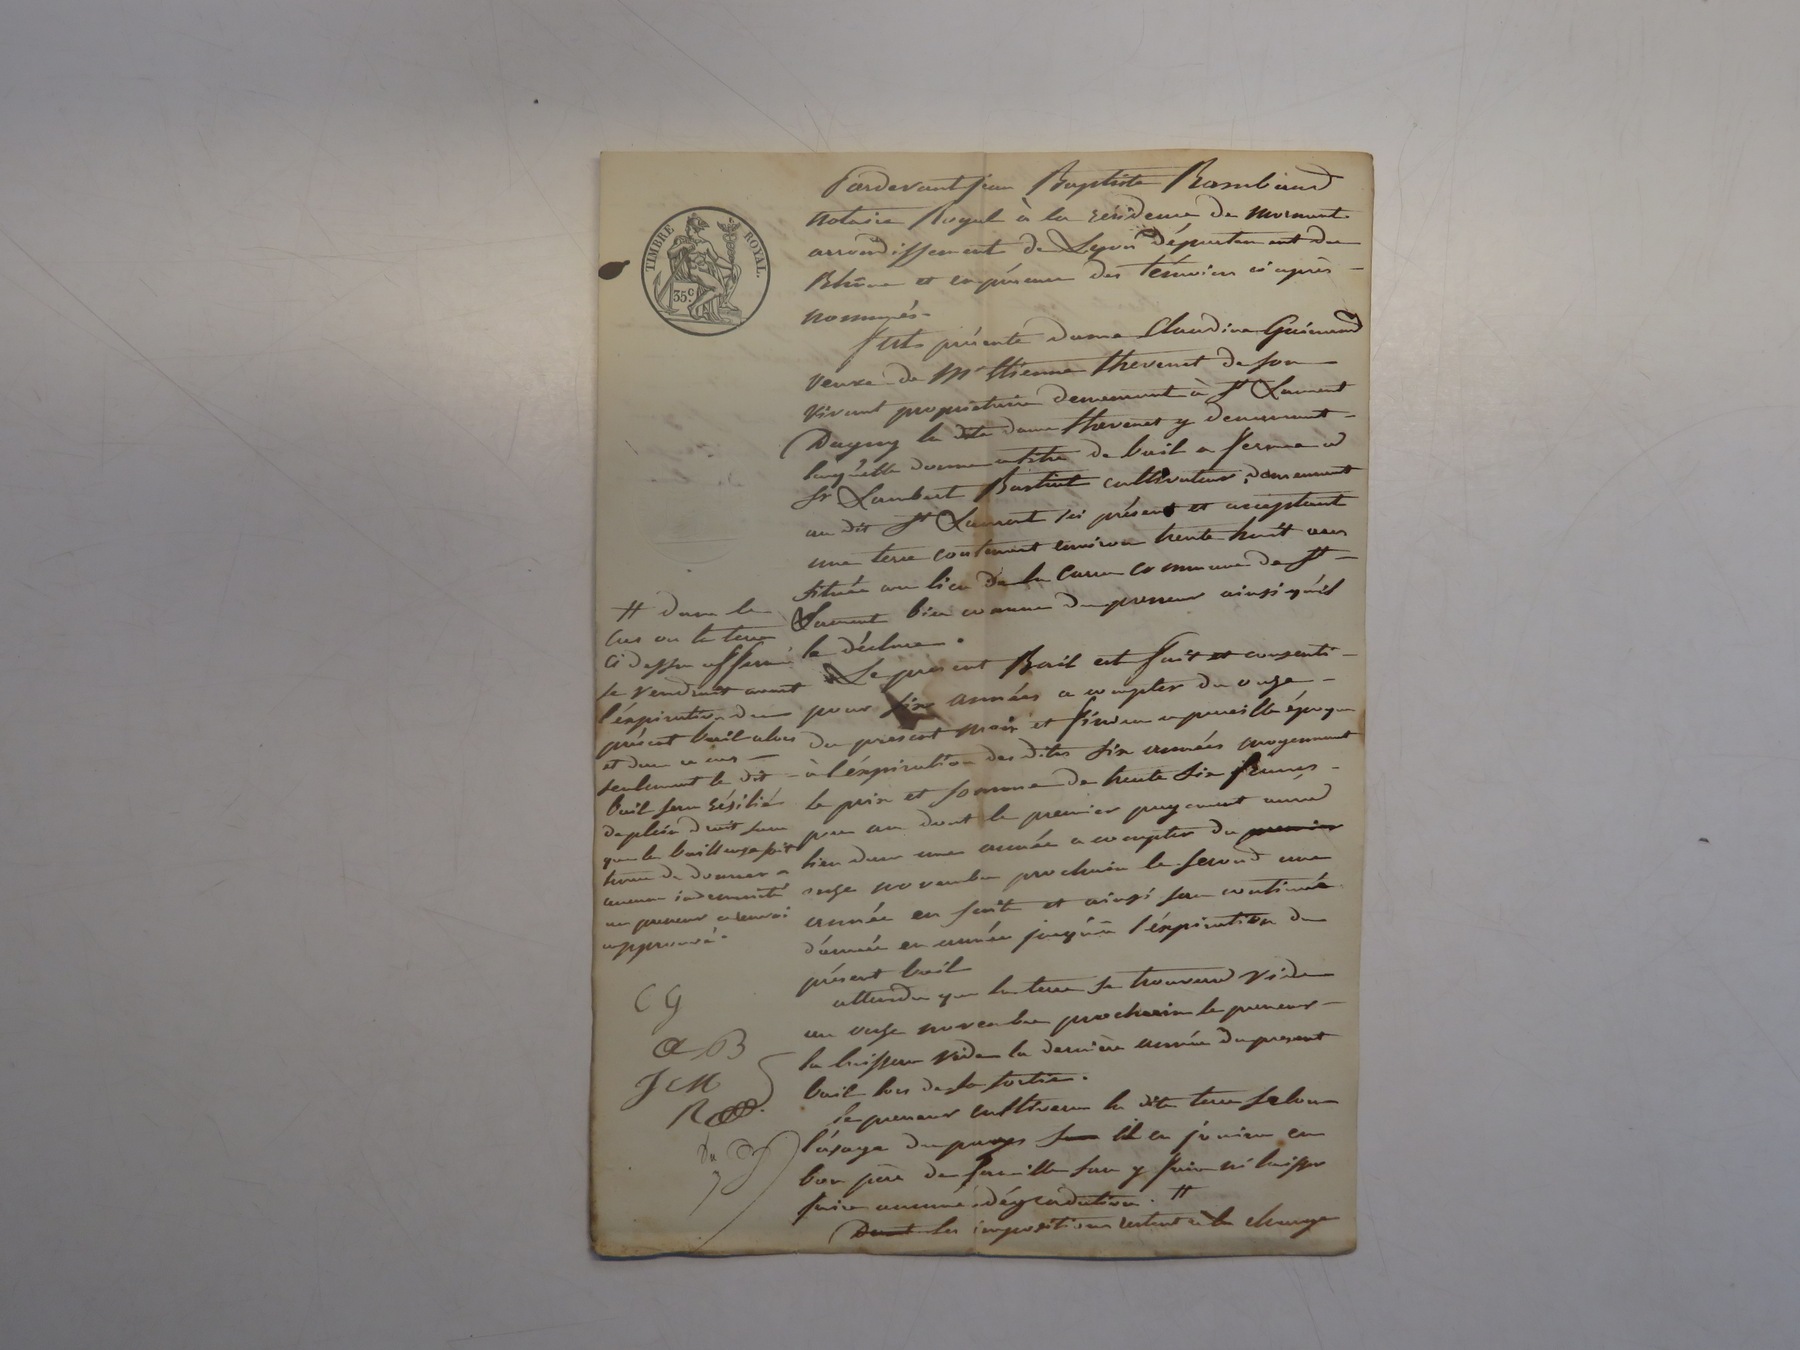 TIMBRE ROYAL.
35c
Pardevant Jean Baptiste Rambaud
notaire Royal à la résidence de Mornant
arrondissement de Lyon département du
Rhône et en présence des témoins ci après
nommés
fut présente dame Claudine Guinand
veuve de Mr Etienne thevenet de son
vivant propriétaire demeurant à St Laurent
Dagny la dite dame thevenet y demeurant
laquelle donne a titre de bail a ferme a
Sr Lambert cultivateur demeurant
au dit St Laurent ici présent et acceptant
une terre contenant environ trente huit ares
située au lieu de la commune de St
Laurent bien connue du preneur ainsi qu'il
le déclare.
Le présent Bail est fait et consenti
pour six années a compter du onze
du present mois et finira a pareille époque
à l'éxpiration des dites six années moyennant
le prix et somme de trente six francs
par an dont le premier payement aura
lieu dans une année a compter du premier
onze novembre prochain le second une
année en suite et ainsi sera continué
d'année en année jusqu'à l'éxpiration du
présent bail
attendu que la terre se trouvera vide
au onze novembre prochain le preneur
la laissera vide la dernière année du present
bail lors de sa sortie.
le preneur cultivera la dite terre selon
l'usage du pays il en jouira en
bon père de famille sans y faire ni laisser
faire aucune dégradation. #
Dont les impositions restent a la charge
# dans le
cas ou la terre
ci dessus affermé
se vendrait avant
l'éxpiration du
présent bail alors
et dans ce cas
seulement le dit
bail sera résilié
de plein droit sans
que la bailleuse soit
tenue de donner
aucune indemnité
au preneur a renvoi
approuvé.
C G
B
J M
R